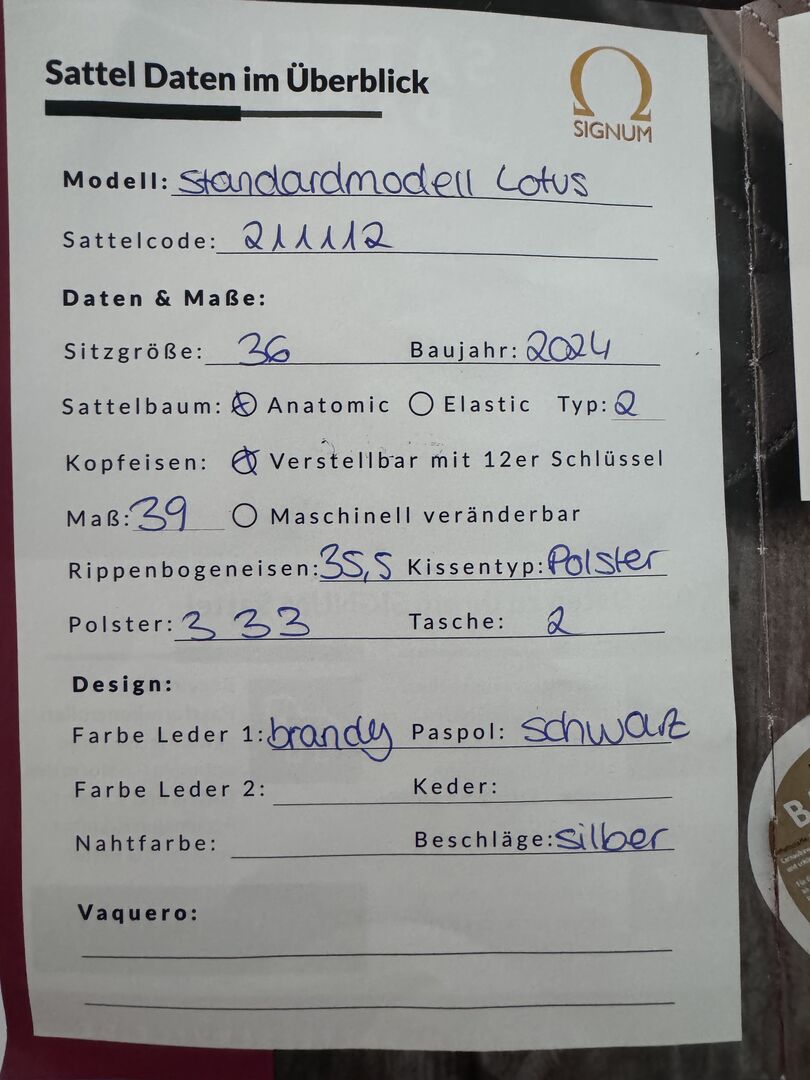 Sattel Daten im Überblick
SIGNUM
Modell: Standardmodell Lotus
Sattelcode: 211112
Daten & Maße:
Sitzgröße: 36 Baujahr: 2024
Sattelbaum: Anatomic Elastic Typ: 2
Kopfeisen: Verstellbar mit 12er Schlüssel
Maß: 39 Maschinell veränderbar
Rippenbogeneisen: 35,5 Kissentyp: Polster
Polster: 3 33 Tasche: 2
Design:
Farbe Leder 1: brandy Paspol: schwarz
Farbe Leder 2: Keder:
Nahtfarbe: Beschläge: silber
Vaquero: